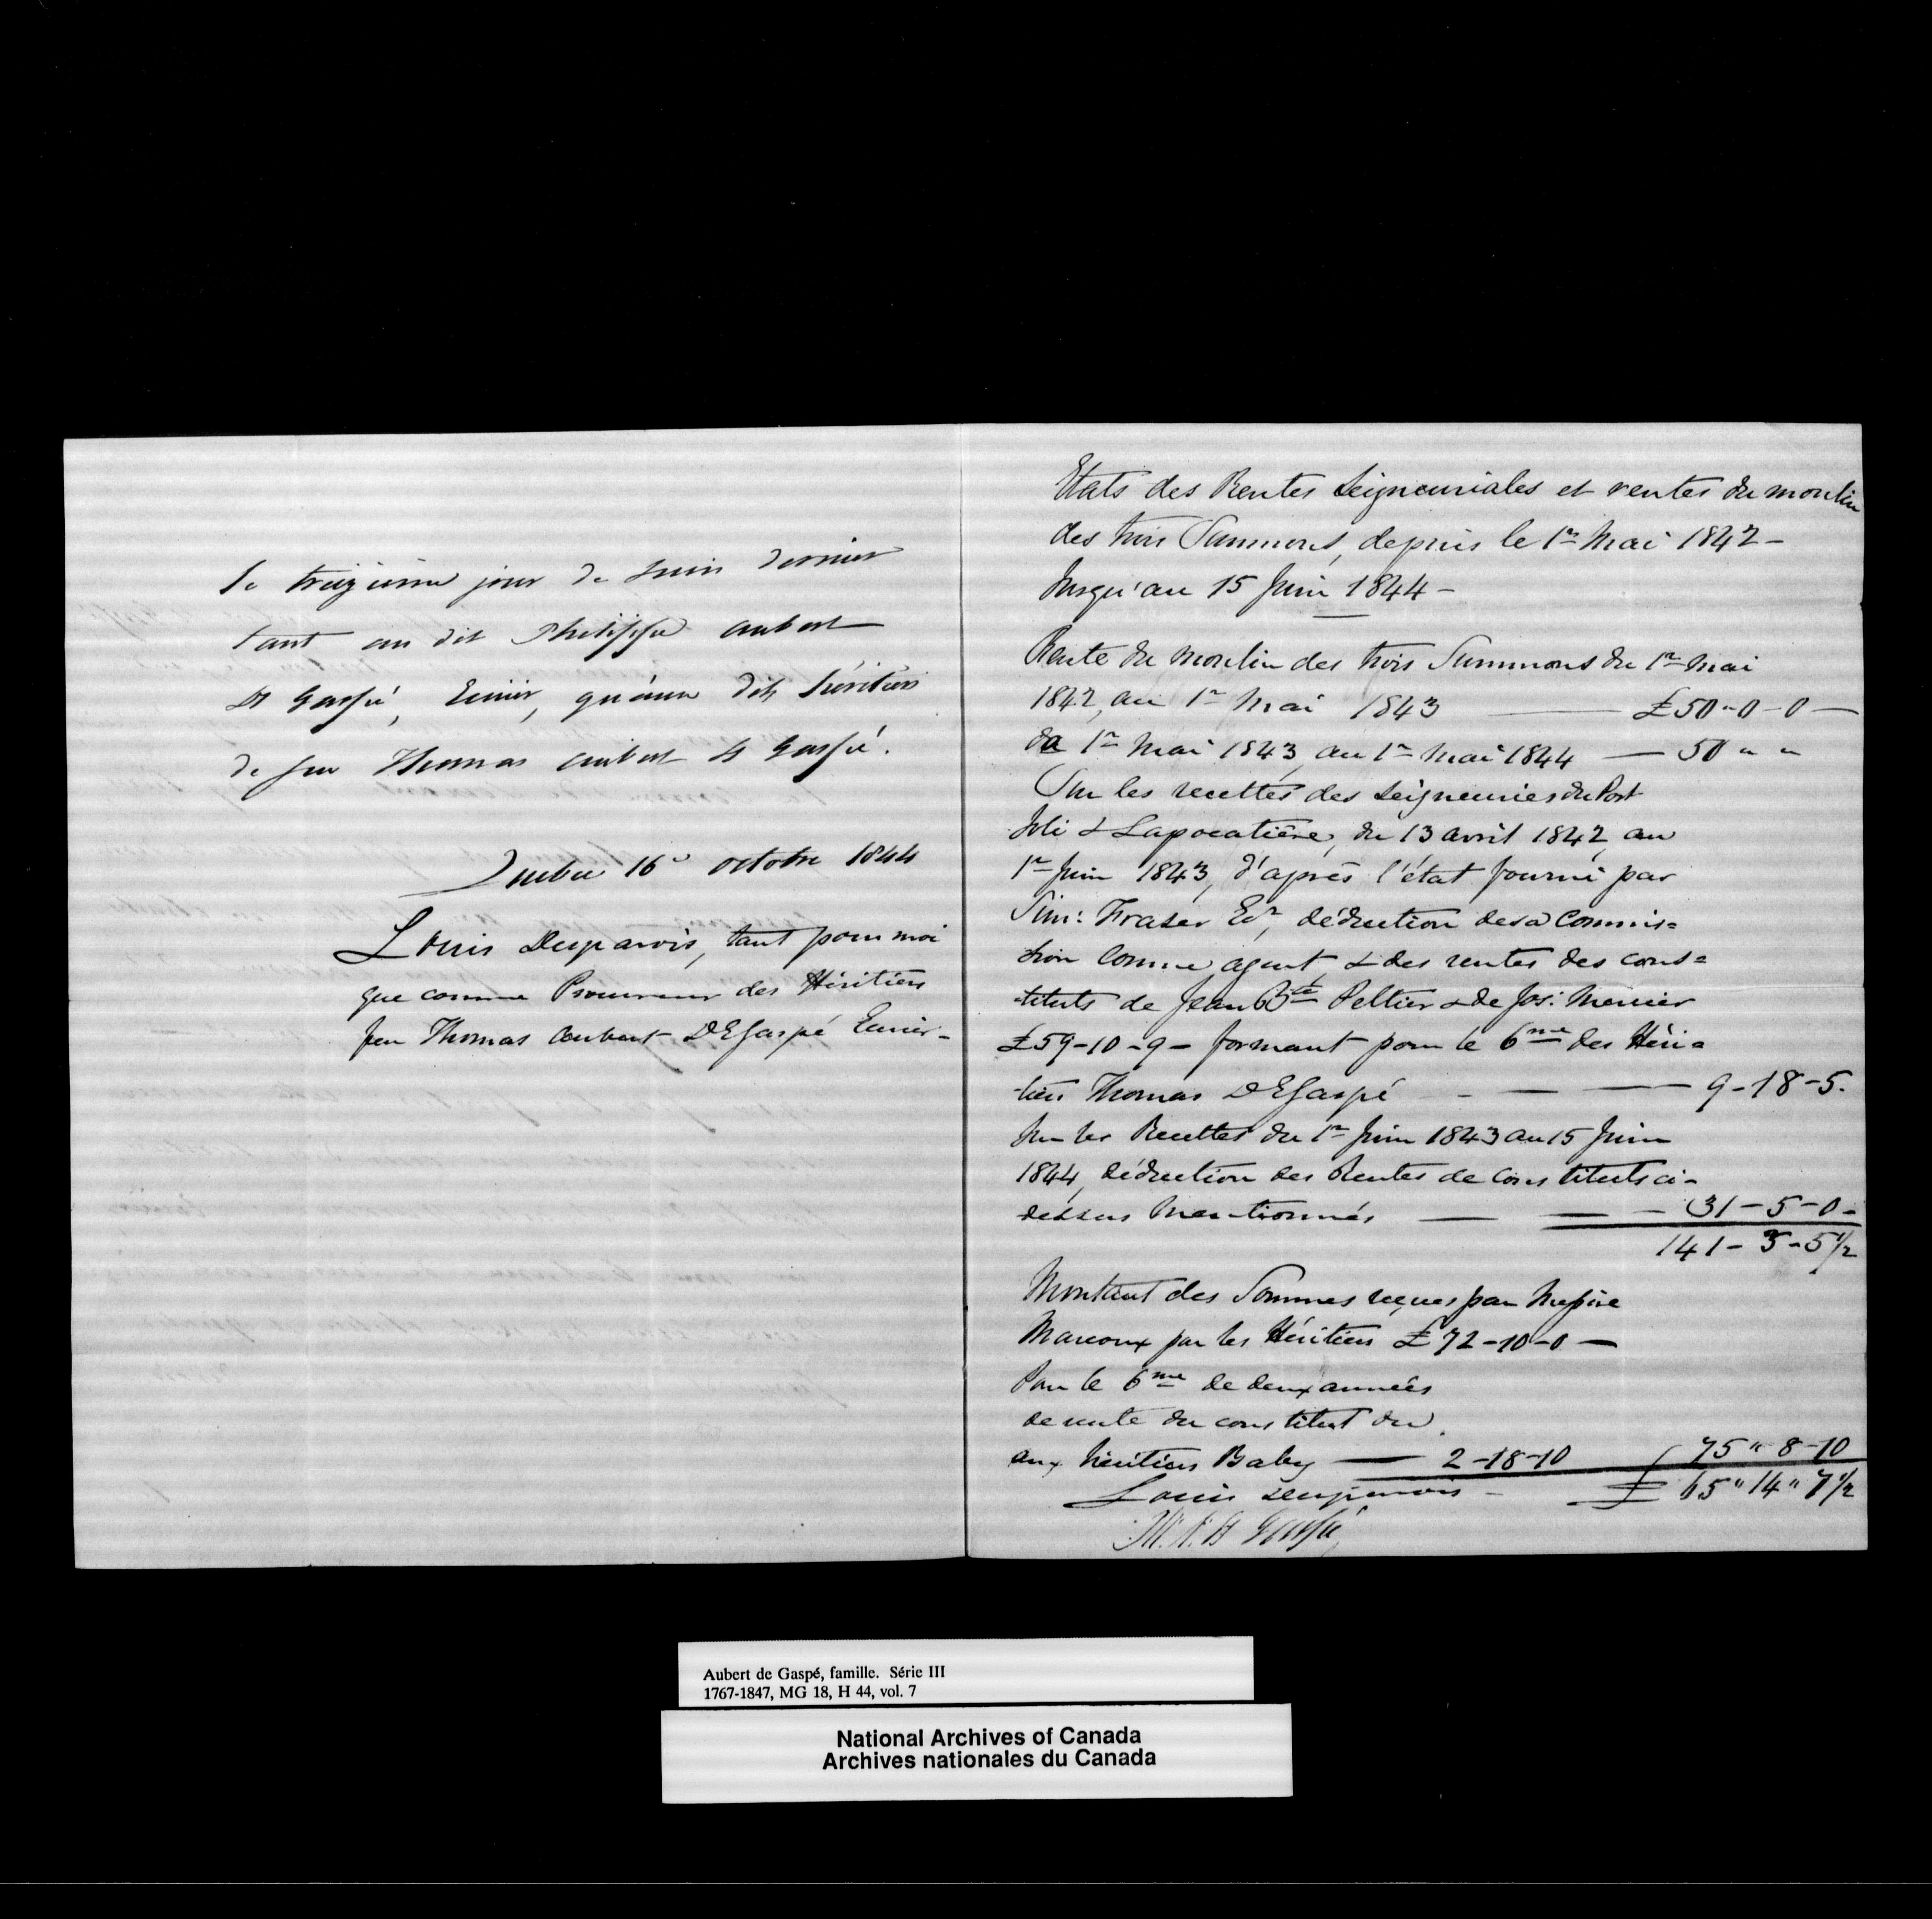 le treizieme jour de Juin dernier
tant au dit Philippe Aubert
de Gaspé, Ecuier, qu'aux dits héritiers
de feu Thomas Aubert de Gaspé.
Quebec 16e octobre 1844
Louis Desparois, tant pour moi
que comme Procureur des Héritiers
feu Thomas Aubert DEGaspé Ecuier-
Etats des Rentes Seigneuriales et rentes du moulin
des trois Saumons, depuis le 1er Mai 1842-
Jusqu'au 15 Juin 1844-
Rente du moulin des trois Summons du 1er Mai
1842, au 1er Mai 1843 — £50"0-0—
da 1er Mai 1843, au 1er Mai 1844 — 50 " "
Sur les recettes des Seigneuries du Port
Joli & Lapocatière, du 13 avril 1842, au
1er Juin 1843, d'après l'état fourni par
Sim: Fraser Ecr, déduction de sa Commis=
sion Comme agent, & des rentes des cons=
tituts de Jean Bte Peltier & de Jos: Mercier
£59-10-9- formant pour le 6me des Héri=
tiers Thomas DEGaspé - — — 9-18-5.
Sur les Recettes du 1er Juin 1843 au 15 Juin
1844, déduction des Rentes de Constituts ci-
dessus Mentionnés — — - 31-5-0-
141-3-5½
Montant des Sommes reçues par
Marcoux par les Héritiers £72-10-0—
Pour le 6me de deux années
de rente du constitut du
aux héritiers Baby — 2-18-10 75"8-10
Louis Desparois - £ 65"14"7½
de Gaspé
Aubert de Gaspé, famille. Série III
1767-1847, MG 18, H 44, vol. 7
National Archives of Canada
Archives nationales du Canada